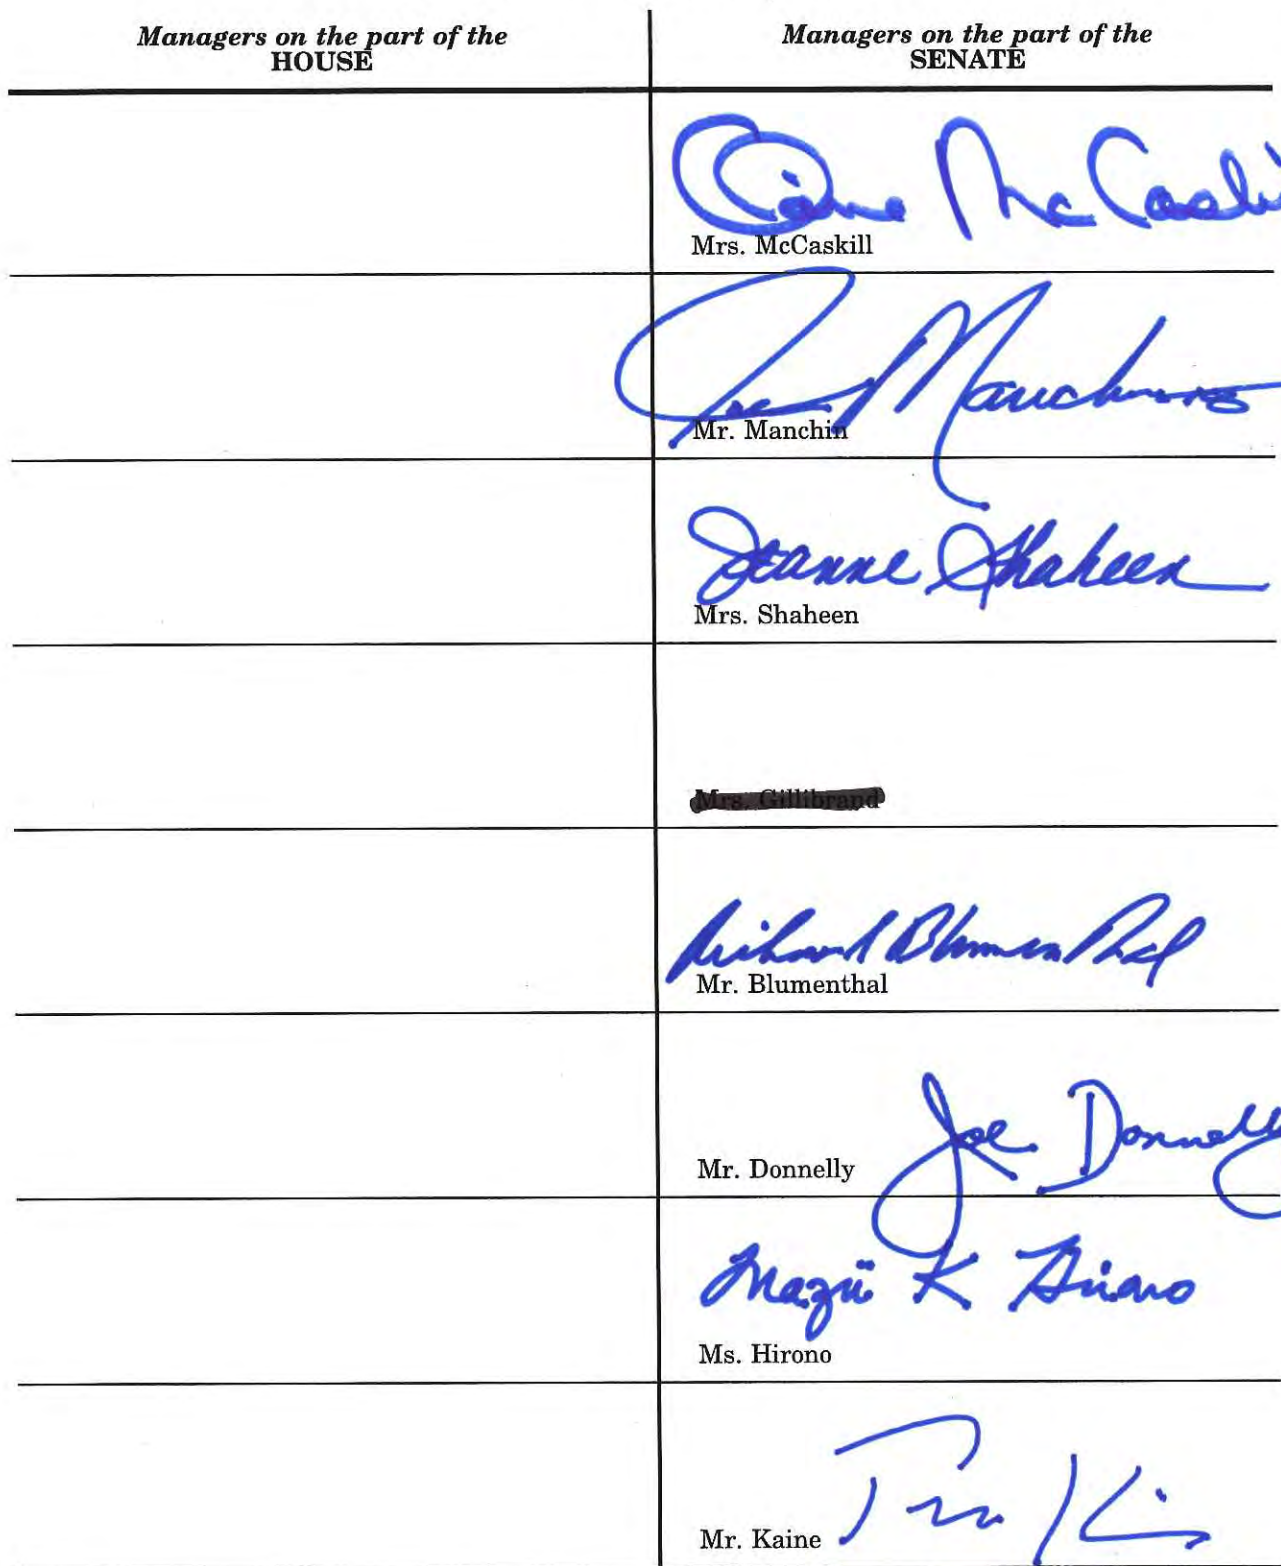 Managers on the part of the
HOUSE
Managers on the part of the
SENATE
Claire McCaskill
Mrs. McCaskill
Joe Manchin
Mr. Manchin
Jeanne Shaheen
Mrs. Shaheen
Mrs. Gillibrand
Richard Blumenthal
Mr. Blumenthal
Joe Donnelly
Mr. Donnelly
Mazie K Hirono
Ms. Hirono
Tim Kaine
Mr. Kaine